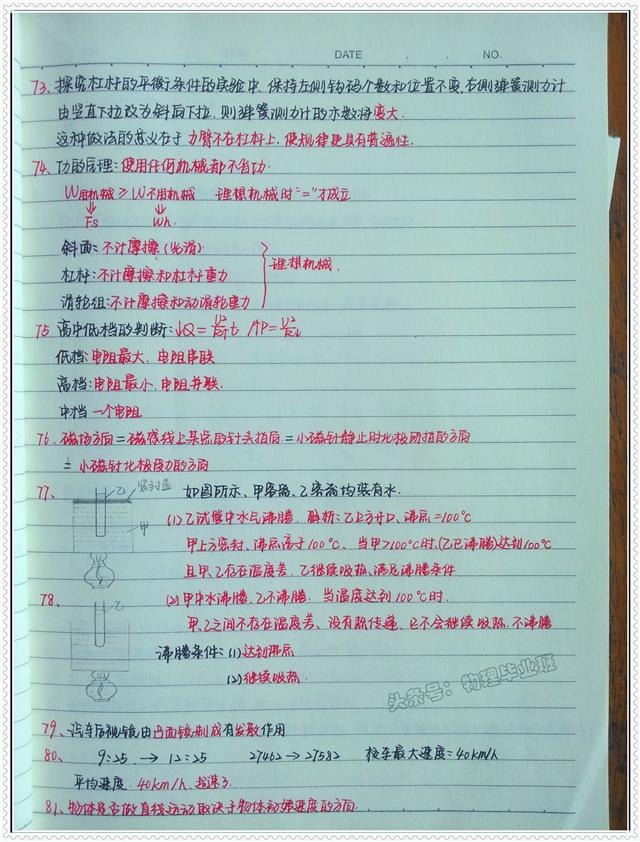 DATE . . NO.
73、探究杠杆的平衡条件的实验中、保持左侧钩码个数和位置不变,右侧弹簧测力计
由竖直下拉改为斜向下拉,则弹簧测力计的示数将变大.
这种做法的意义在于 力臂不在杠杆上,使规律更具有普遍性.
74、功的原理:使用任何机械都不省功.
W用机械 ≥ W不用机械 理想机械时"="才成立
Fs Wh.
斜面:不计摩擦(光滑).
杠杆:不计摩擦和杠杆重力
理想机械.
滑轮组:不计摩擦和动滑轮重力
75 高中低档的判断:↓Q=U²/R↑ t ↑P=U²/R↓
低档:电阻最大、电阻串联
高档:电阻最小、电阻并联.
中档 一个电阻
76、磁场方向=磁感线上某点的针尖指向.=小磁针静止时北极所指的方向
=小磁针北极受力的方向
77、 乙 密封盖 如图所示、甲容器、乙容器均装有水.
甲 (1)乙试管中水与沸腾. 解析:乙上方开口、沸点=100℃
甲上方密封、沸点高于100℃、当甲>100℃时、(乙已沸腾)达到100℃
且甲、乙存在温度差,乙继续吸热、满足沸腾条件
78、 乙 (2)甲中水沸腾、乙不沸腾. 当温度达到100℃时.
甲、乙之间不存在温度差、没有热传递、乙不会继续吸热、不沸腾
沸腾条件:(1)达到沸点
(2)继续吸热.
79、汽车后视镜由凸面镜制成有发散作用
80、 9:25 → 12:25 27462→27582 校车最大速度=40km/h
平均速度.40km/h、超速了.
81、物体是否做直线运动取决于物体初始速度的方向.
头条号:物理毕业班